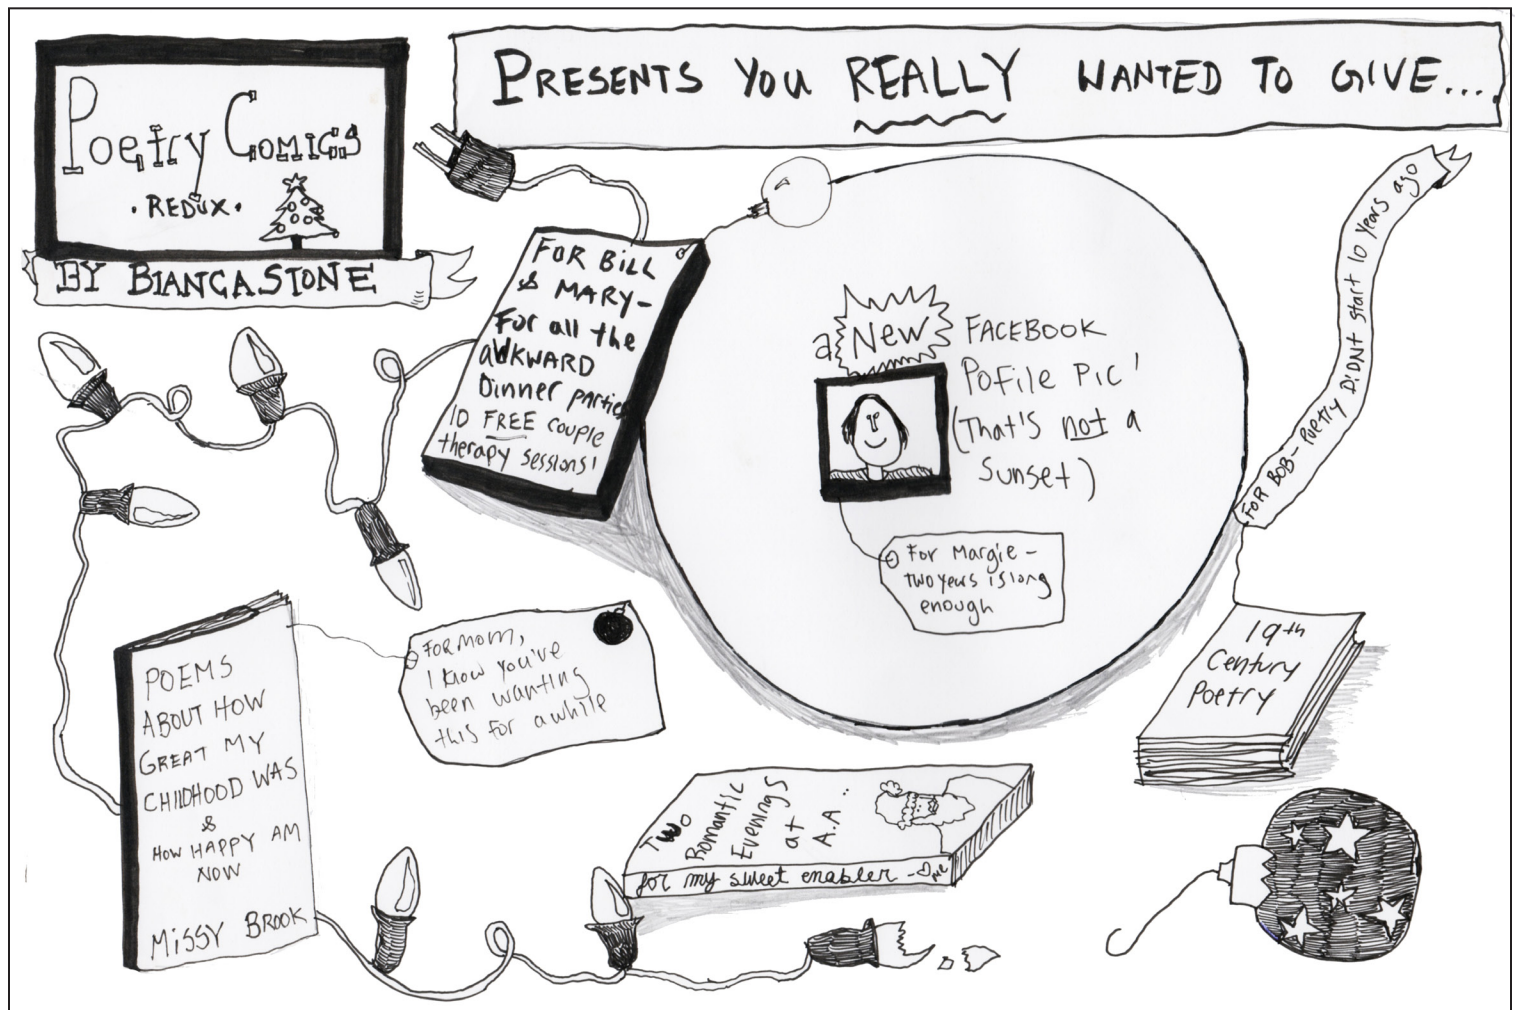 Poetry Comics
• REDUX •
BY BIANCA STONE
PRESENTS YOU REALLY WANTED TO GIVE...
FOR BILL
& MARY–
For all the
AWKWARD
Dinner parties
10 FREE couple
therapy sessions!
a New FACEBOOK
Pofile Pic!
(That's not a
Sunset)
For Margie –
two years is long
enough
FOR BOB– POETRY DIDNT start 10 Years ago
19th
Century
Poetry
POEMS
ABOUT HOW
GREAT MY
CHILDHOOD WAS
&
HOW HAPPY AM
NOW
MISSY BROOK
For mom,
I know you've
been wanting
this for awhile
Two
Romantic
Evenings
at
A.A..
for my sweet enabler –♡ me